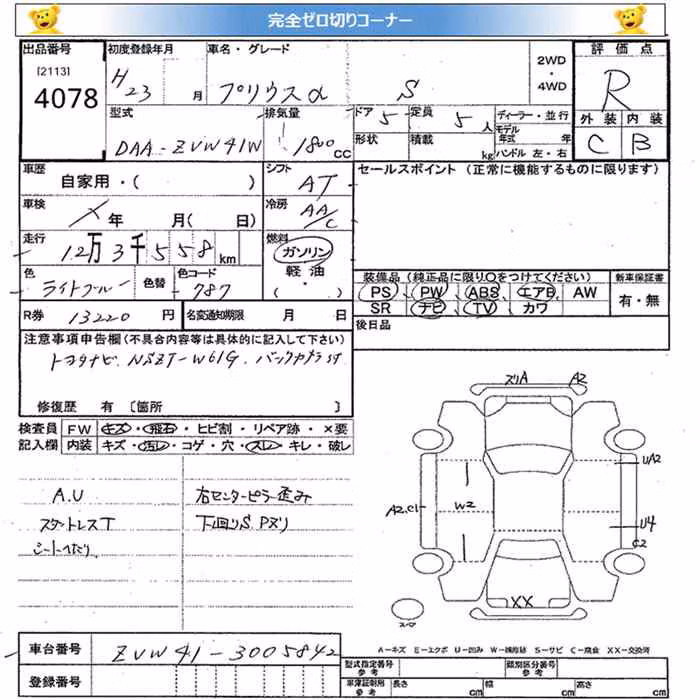 完全ゼロ切りコーナー
出品番号 初度登録年月 車名・グレード 2WD ・ 4WD 評価点
[2113]
4078
H 23 月 プリウスα S R
型式 排気量 ドア 5 定員 5人 ディーラー・並行 外装 内装
モデル年式 年
DAA-ZVW41W 1800 CC 形状 積載 kg ハンドル 左・右 C B
車歴 シフト セールスポイント (正常に機能するものに限ります)
自家用・( ) AT
車検 冷房
×年 月( 日) AA/C
走行 燃料
12万3千558km ガソリン
色 色替 色コード 軽油 装備品 (純正品に限り○をつけてください) 新車保証書
ライトブルー 787 ( ) PS、PW、ABS、エアB、AW 有・無
SR ナビ、TV、カワ
R券 13220円 名変通知期限 月 日 後日品
注意事項申告欄 (不具合内容等は具体的に記入して下さい)
トヨタナビ NSZT-W61G バックカメラ
修復歴 有 [箇所 ]
検査員 FW キズ・飛石・ヒビ割・リペア跡・×要
記入欄 内装 キズ・汚レ・コゲ・穴・スレ・キレ・破レ
A.U 右センターピラー歪み
スタットレスT 下回りS Pズリ
シートヘたり
ズリA A2
UA2
A2.C1 W2
U4
C2
XX
スペア
A−キズ E−エクボ U−凹み W−補修跡 S−サビ C−腐食 XX−交換済
車台番号 ZVW41-3005842 型式指定番号 参考 類別区分番号 参考
登録番号 車庫証明用 参考 長さ cm 幅 cm 高さ cm